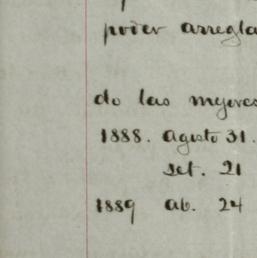 poder arregla
do las mejores
1888. Agosto 31.
Set. 21
1889 Ab. 24